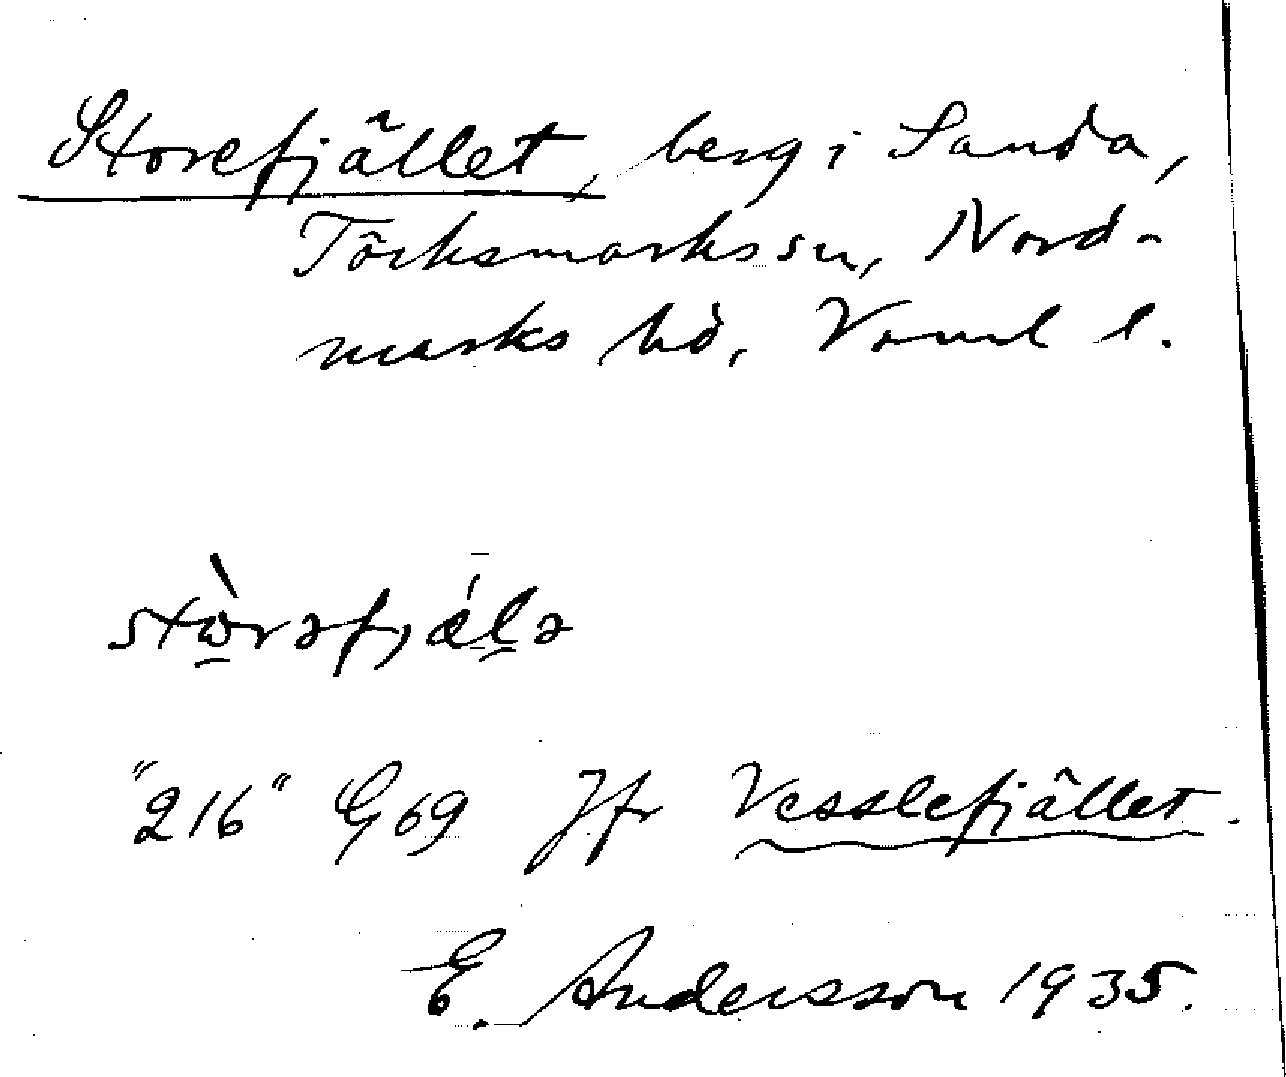 Storefjället, berg i Sanda,
Töcksmarks sn, Nord-
marks hd, Värml l.
stòrəfjælə
"216" G 69 Jfr Vesslefjället.
E. Andersson 1935.